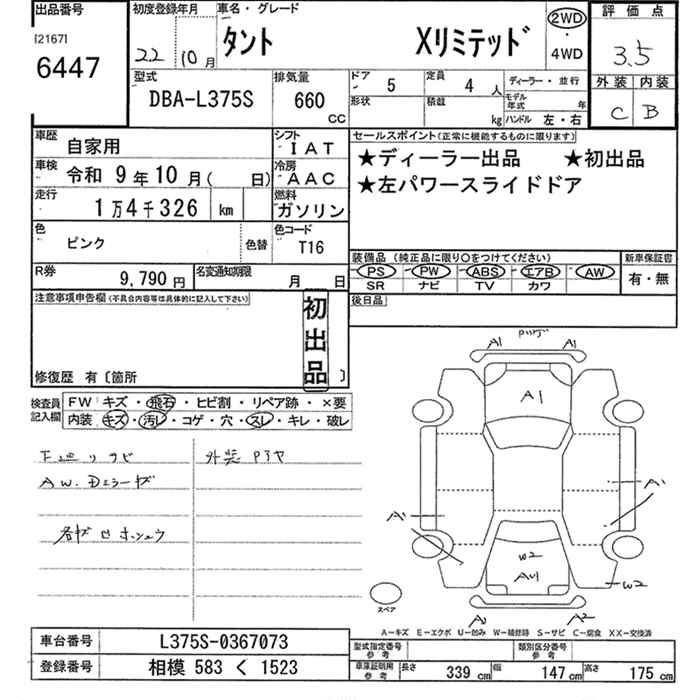 出品番号
[2167]
6447
初度登録年月
22 10月
車名・グレード
タント Xリミテッド
2WD
・
4WD
評価点
3.5
外装 内装
C B
型式
DBA-L375S
排気量
660
CC
ドア
5
定員
4 人
ディーラー・並行
形状
積載
kg
モデル年式
年
ハンドル 左・右
車歴
自家用
シフト
IAT
車検
令和 9年10月( 日)
冷房
AAC
走行
1万4千326 km
燃料
ガソリン
色
ピンク
色替
色コード
T16
R券
9,790円
名変通知期限
月 日
セールスポイント(正常に機能するものに限ります)
★ディーラー出品 ★初出品
★左パワースライドドア
装備品 (純正品に限り○をつけてください)
新車保証書
PS PW ABS エアB AW
SR ナビ TV カワ
有・無
後日品
注意事項申告欄(不具合内容等は具体的に記入して下さい)
初出品
修復歴 有〔箇所 〕
検査員
記入欄
FW キズ・飛石・ヒビ割・リペア跡・×要
内装 キズ・汚レ・コゲ・穴・スレ・キレ・破レ
下廻りサビ
外装 PTヤ
AW. Dミラーキズ
A1 A1
A1
A1
A1
W2
AU1
W2
A2
スペア
A-キズ E-エクボ U-凹み W-補修跡 S-サビ C-腐食 XX-交換済
車台番号
L375S-0367073
登録番号
相模 583 く 1523
型式指定番号
参考
類別区分番号
参考
車庫証明用
参考
長さ 339 cm 幅 147 cm 高さ 175 cm